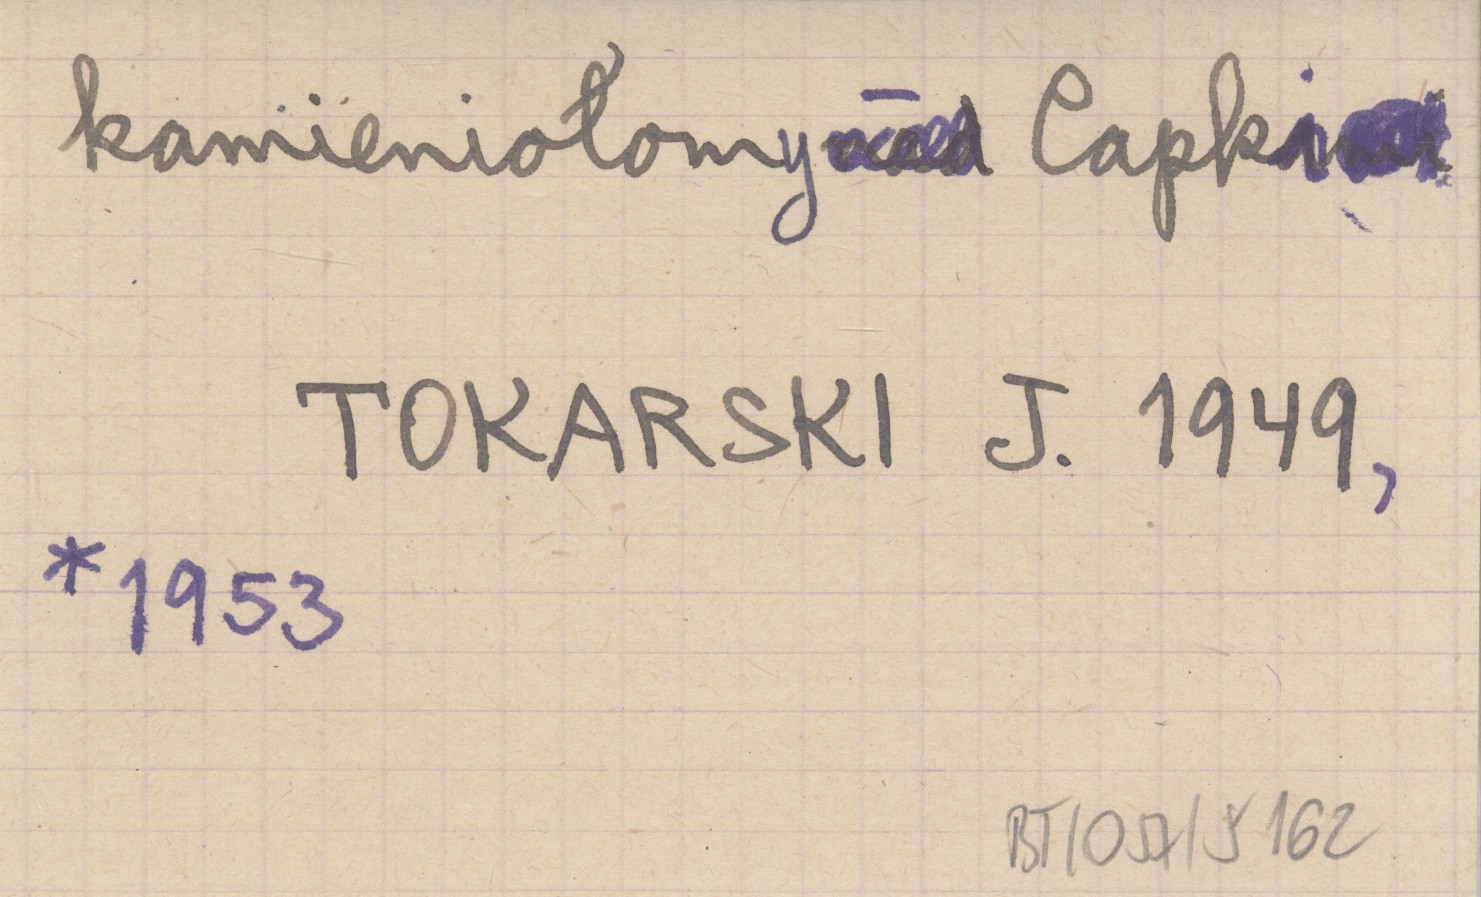 kamieniołomy – Capki
TOKARSKI J. 1949,
*1953
BT/057/5162